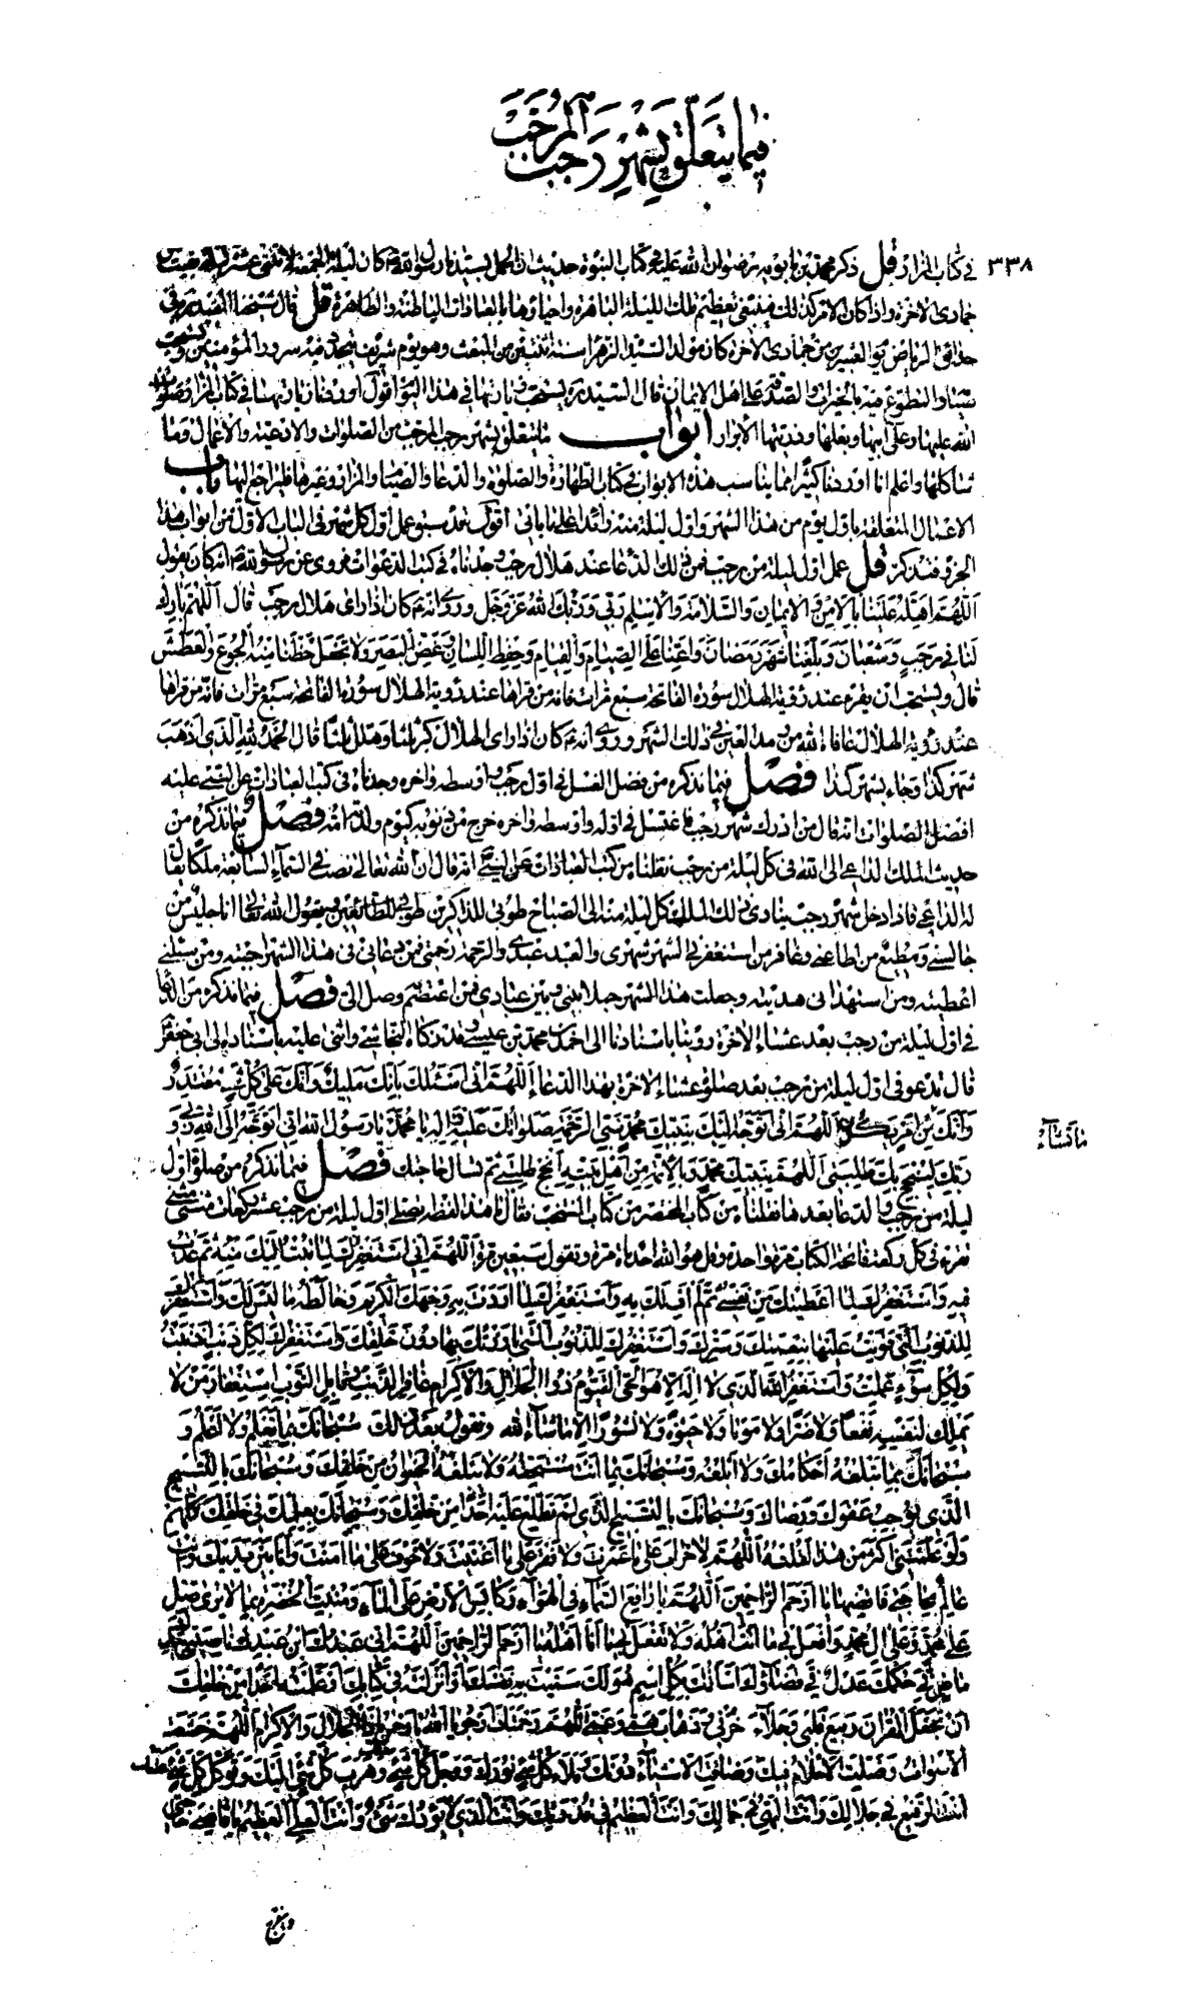 فيما يتعلق بشهر رجب المرجب
٣٣٨
في كتاب المزار قل ذكر محمد بن بابويه رضوان الله عليه في كتاب النبوة حديث أن الحمل بسيدنا رسول الله ص كان ليلة الجمعة لاثنتي عشرة ليلة بقيت من
جمادى الآخرة واذا كان الامر كذلك فينبغي تعظيم تلك الليلة الباهرة واحياؤها بالعبادات الباطنة والظاهرة قل قال شيخنا المفيد ره في
حدائق الرياض يوم العشرين من جمادى الآخرة كان مولد السيدة الزهراء سنة اثنتين من المبعث وهو يوم شريف يتجدد فيه سرور المؤمنين ويستحب
صيامه والتطوع فيه بالخيرات والصدقة على اهل الايمان قال السيد ره يستحب زيارتها في هذا اليوم اقول اوردنا زيارتها في كتاب المزار وصلوات
الله عليها وعلى ابيها وبعلها وذريتها الابرار ابواب ما يتعلق بشهر رجب المرجب من الصلوات والادعية والاعمال وما
شاكلها واعلم انا اوردنا كثيرا مما يناسب هذه الابواب في كتاب الطهارة والصلوة والدعا والصيام والمزار وغيرها فليراجع اليها باب
الاعمال المتعلقة باول يوم من هذا الشهر واول ليلة منه زائدا على ما ياتي اقول قد سبق عمل اول كل شهر في الباب الاول من ابواب هذا
الجزو فتذكر قل عمل اول ليلة من رجب فمن ذلك الدعا عند هلال رجب وجدناه في كتب الدعوات فروى عن رسول الله ص انه كان يقول
اللهم اهله علينا بالامن والايمان والسلامة والاسلام ربي وربك الله عز وجل وروي انه ع كان اذا راى هلال رجب قال اللهم بارك
لنا في رجب وشعبان وبلغنا شهر رمضان واعنا على الصيام والقيام وحفظ اللسان وغض البصر ولا تجعل حظنا منه الجوع والعطش
قال ويستحب ان يقرء عند رؤية الهلال سورة الفاتحة سبع مرات فانه من قراها عند رؤية الهلال سورة الفاتحة سبع مرات فانه من قراها
عند رؤية الهلال عافاه الله من رمد العين في ذلك الشهر وروي انه ع كان اذا راى الهلال كبر ثلثا وهلل ثلثا قال الحمد لله الذي اذهب
شهر كذا وجاء بشهر كذا فصل فيما نذكره من فضل الغسل في اول رجب واوسطه واخره وجدناه في كتب العبادات عن النبي عليه
افضل الصلوات انه قال من ادرك شهر رجب فاغتسل في اوله واوسطه واخره خرج من ذنوبه كيوم ولدته امه فصل فيما نذكره من
حديث الملك الداعي الى الله في كل ليلة من رجب نقلناه من كتب العبادات عن النبي انه قال ان الله تعالى نصب في السماء السابعة ملكا يقال
له الداعي فاذا دخل شهر رجب ينادي ذلك الملك كل ليلة منه الى الصباح طوبى للذاكرين طوبى للطائعين ويقول الله تعالى انا جليس من
جالسني ومطيع من اطاعني وغافر من استغفرني الشهر شهري والعبد عبدي والرحمة رحمتي فمن دعاني في هذا الشهر اجبته ومن سئلني
اعطيته ومن استهداني هديته وجعلت هذا الشهر حبلا بيني وبين عبادي فمن اعتصم وصل الي فصل فيما نذكره من الدعا
في اول ليلة من رجب بعد عشاء الآخرة روينا باسنادنا الى احمد بن محمد بن عيسى وقد زكاه النجاشي واثنى عليه باسناده الى ابي جعفر
قال تدعو في اول ليلة من رجب بعد صلوة عشاء الآخرة بهذا الدعاء اللهم اني اسئلك بانك مليك وانك على كل شيء مقتدر
وانك من امر يكون اللهم اني اتوجه اليك بنبيك محمد نبي الرحمة صلواتك عليه واله يا محمد يا رسول الله اني اتوجه الى الله ربي و
ما تشاء
ربك لينجح بك طلبتي اللهم بنبيك محمد وبالائمة من اهل بيته انجح طلبتي ثم تسأل حاجتك فصل فيما نذكره من صلوة اول
ليلة من رجب والدعا بعد ما نقلناه من كتاب المختصر من كتاب المنتخب فقال ما هذا لفظه يصلي اول ليلة من رجب عشر ركعات مثنى مثنى
تقرء في كل ركعة فاتحة الكتاب مرة واحدة وقل هو الله احد مائة مرة وتقول سبعين مرة اللهم اني استغفرك لما تبت اليك منه ثم عدت
فيه واستغفرك لما اعطيتك من نفسي ثم لم اف لك به واستغفرك لما اردت به وجهك الكريم وخالطه ما ليس لك واستغفرك
للذنوب التي قويت عليها بنعمتك وسترك واستغفرك للذنوب التي بارزتك بها دون خلقك واستغفرك لكل ذنب اذنبت
ولكل سوء عملت واستغفر الله الذي لا اله الا هو الحي القيوم ذو الجلال والاكرام غافر الذنب وقابل التوب استغفار من لا
يملك لنفسه نفعا ولا ضرا ولا موتا ولا حيوة ولا نشورا الا ما شاء الله وتقول بعد ذلك سبحانك بما تعلم ولا اعلم و
سبحانك بما تبلغه احكامك ولا ابلغه وسبحانك بما انت مستحقه ولا يبلغه الحيوان من خلقك وسبحانك بالتسبيح
الذي يوجب عفوك ورضاك وسبحانك بالتسبيح الذي لم تطلع عليه احدا من خلقك وسبحانك بعلمك في خلقك كلهم
ولو علمتني اكثر من هذا لقلته اللهم لا خراب على ما عمرت ولا فقر على ما اغنيت ولا خوف على ما امنت وانا بين يديك وانت
عالم بحاجتي فاقضها يا ارحم الراحمين اللهم يا رافع السماء في الهواء وكابس الارض على الماء ومنبت الخضر بما لا يرى صل
على محمد وعلى ال محمد وافعل بي ما انت اهله ولا تفعل بي ما انا اهله يا ارحم الراحمين اللهم اني عبدك ابن عبديك ناصيتي بيدك
ماض في حكمك عدل في قضاؤك اسالك بكل اسم هو لك سميت به نفسك او انزلته في كتابك او علمته احدا من خلقك
ان تجعل القران ربيع قلبي وجلاء حزني وذهاب همي وغمي اللهم رحمتك ارجو يا الله يا رحمن يا ذا الجلال والاكرام اللهم خشعت
الاصوات وضلت الاحلام فيك وضاقت الاشياء دونك وملاء كل شيء نورك ووجل كل شيء منك وهرب كل شيء اليك وتوكل كل شيء عليك
انت الرفيع في جلالك وانت البهي في جمالك وانت العظيم في قدرتك وانت الذي لا يؤدك شيء وانت العلي العظيم يا قاضي حاجتي
ومفرج